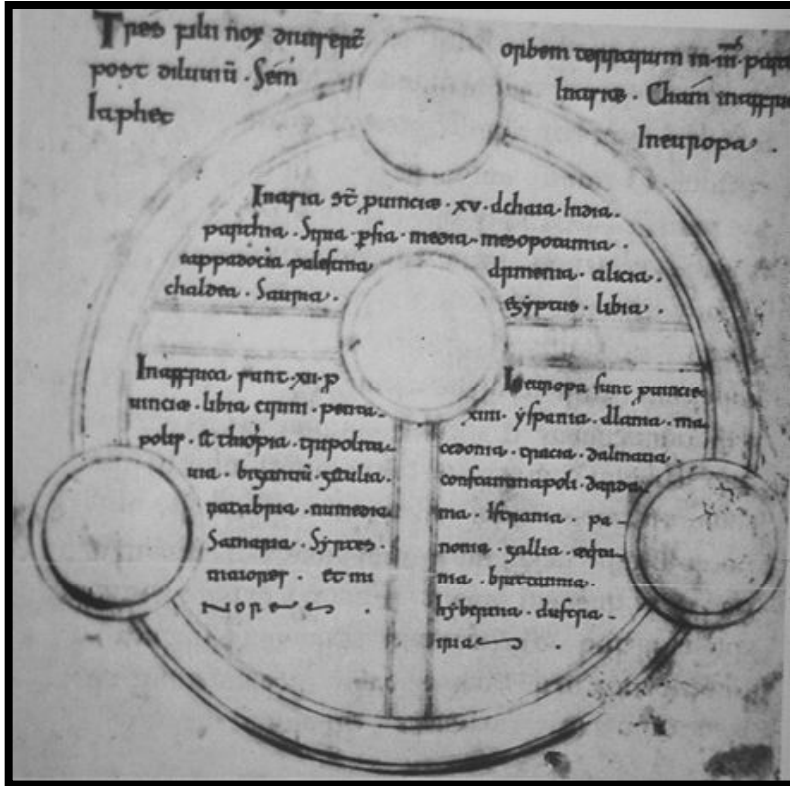 Tres filii noe diuisert̄ orbem terrarum in .iii. par
post diluuiū . Sem Inasia . Cham in affri
Iaphet Ineuropa .
Inasia st̄ puinciæ . xv . India .
parthia . Siria . psia . media . mesopotamia .
cappadocia palestina armenia . cilicia .
chaldea . Sauria . egyptus . libia .
Inaffrica sunt . xii . p
uinciæ . libia cirini . penta
polis . æthiopia tripolita
nia . bizantiū . getulia .
numedia
Samaria . Syrtes .
maiores . et mi
nores .
Ineuropa sunt puinciæ
xiiii . yspania . alania . ma
cedonia . tracia . dalmatia
constantinapoli . darda
nia . istrania . pa
nonia . gallia . æqui
nia . britannia .
hybernia .